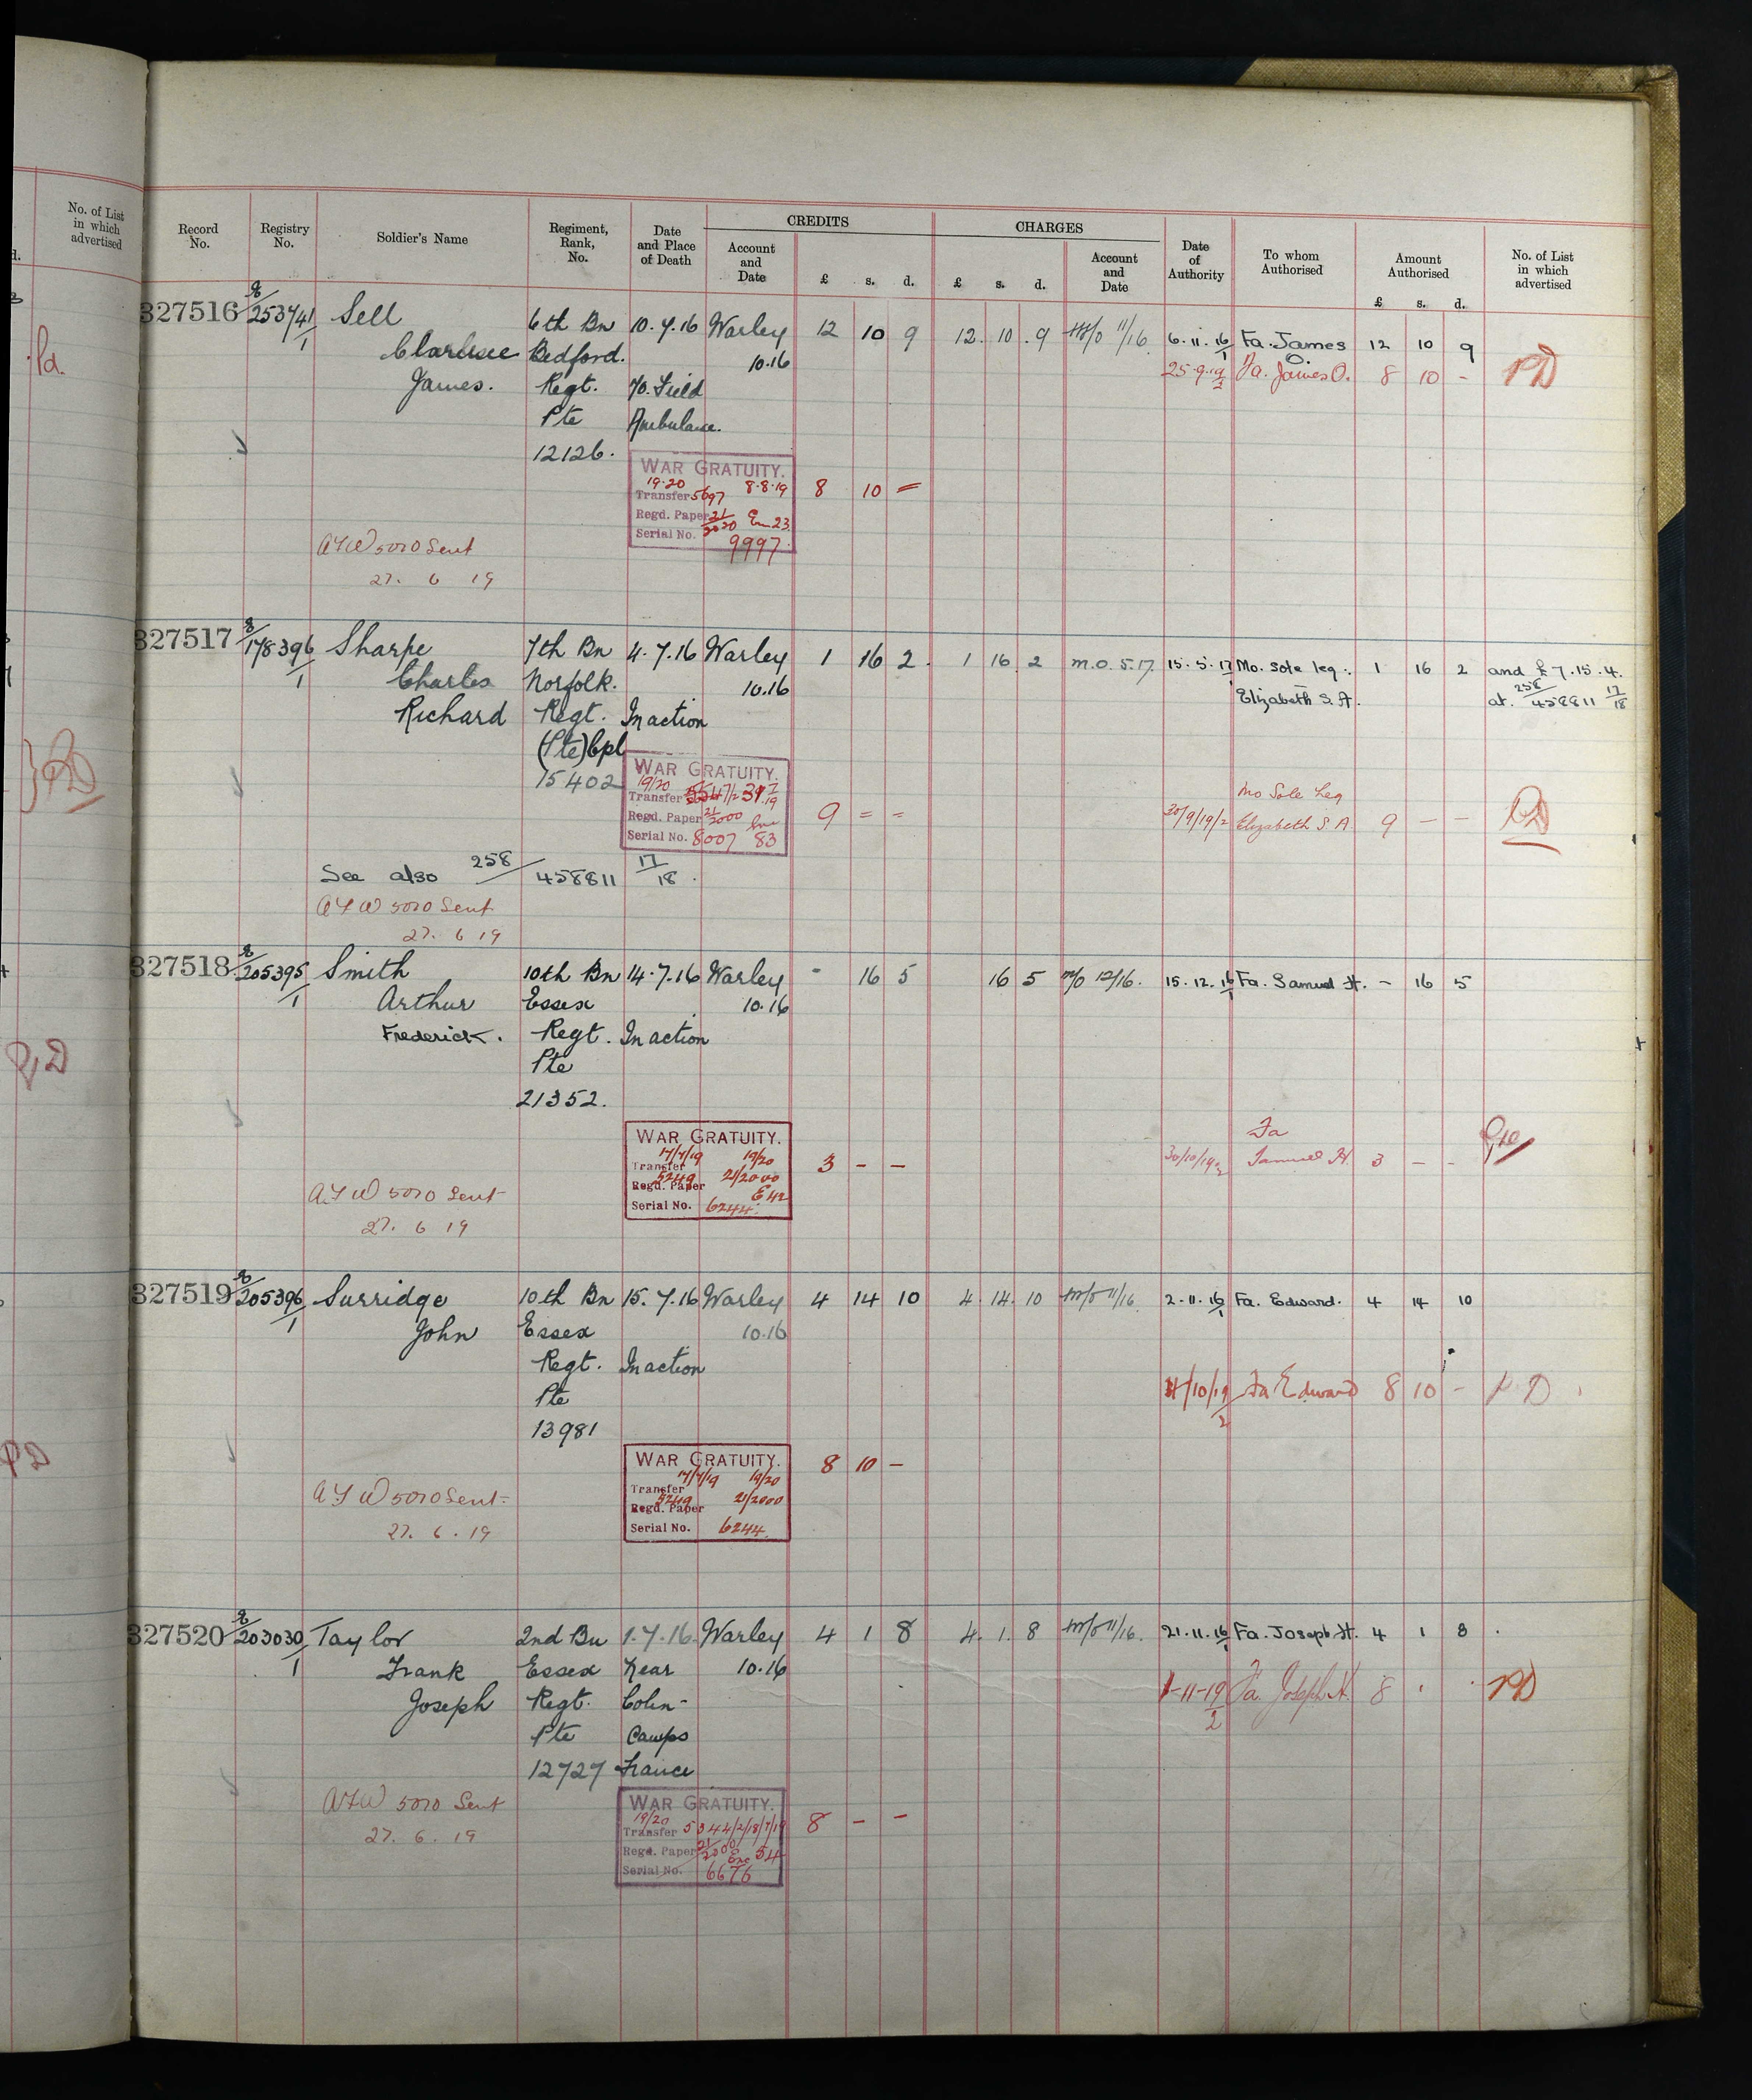 No. of List
in which
advertised
Record
No.
Registry
No.
Soldier's Name
Regiment,
Rank,
No.
Date
and Place
of Death
CREDITS
Account
and
Date
£ s. d.
CHARGES
£ s. d.
Account
and
Date
Date
of
Authority
To whom
Authorised
Amount
Authorised
£ s. d.
No. of List
in which
advertised
327516 253741/1 Sell 6th Bn 10.7.16 Warley 12 10 9 12. 10. 9 11/16 6.11.16/1 Fa. James 12 10 9
Clarence Bedford. 10.16 O.
James. Regt. 70. Field 25.9.19/2 Fa. James O. 8 10 - PD
Pte Ambulance.
12126.
WAR GRATUITY.
19.20 8.8.19
Transfer 5697 8 10 =
Regd. Paper 21/2020 Em 23
Serial No. 9997.
AFW 5070 Sent
27. 6 19
327517 178396/1 Sharpe 7th Bn 4.7.16 Warley 1 16 2. 1 16 2 m.o. 5.17. 15.5.17 Mo. Sole leg: 1 16 2 and £7.15.4.
Charles Norfolk. 10.16 Elizabeth S.A. at 258/458811 17/18
Richard Regt. In action
(Pte) Cpl
15402
WAR GRATUITY.
19/20
Transfer
Regd. Paper 21/2000 9 = =
Serial No. 8007 83
Mo Sole Leg
30/9/19/2 Elizabeth S A 9 - - PD
See also 258/458811 17/18.
AFW 5070 Sent
27. 6 19
327518 205395/1 Smith 10th Bn 14.7.16 Warley - 16 5 16 5 m/o 12/16. 15.12.16 Fa. Samuel H. - 16 5
Arthur Essex 10.16
Frederick. Regt. In action
Pte
21352.
WAR GRATUITY.
17/7/19 19/20
Transfer 3 - -
5249 21/2000
Regd. Paper E 42
Serial No. 6244.
Fa
30/10/19/2 Samuel H. 3 - -
AFW 5070 Sent
27. 6 19
327519 205396/1 Surridge 10th Bn 15.7.16 Warley 4 14 10 4. 14. 10 m/o 11/16. 2.11.16/1 Fa. Edward. 4 14 10
John Essex 10.16
Regt. In action
Pte /10/19/2 Fa Edward 8 10 - PD
13981
WAR GRATUITY.
17/7/19 19/20 8 10 -
Transfer
5249 21/2000
Regd. Paper
Serial No. 6244.
AFW 5070 Sent
27. 6. 19
327520 203030/1 Taylor 2nd Bn 1.7.16. Warley 4 1 8 4. 1. 8 m/o 11/16. 21.11.16 Fa. Joseph H. 4 1 8
Frank Essex Near 10.16
Joseph Regt. Colin- 1-11-19/2 Fa. Joseph H. 8 PD
Pte Camps
12727 France
WAR GRATUITY.
19/20
Transfer 5344/2/18/7/19 8 - -
Regd. Paper 21/2000 Enc 54
Serial No. 6676
AFW 5070 Sent
27. 6. 19